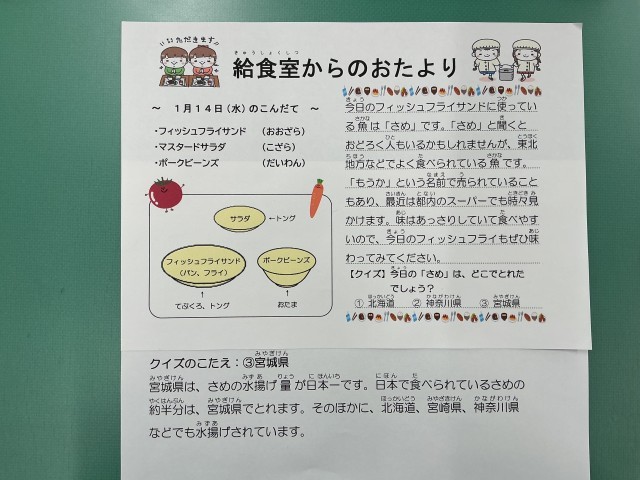 いただきます
給食室からのおたより
きゅうしょくしつ
~ 1月14日(水)のこんだて ~
・フィッシュフライサンド (おおざら)
・マスタードサラダ (こざら)
・ポークビーンズ (だいわん)
サラダ
←トング
フィッシュフライサンド
(パン、フライ)
ポークビーンズ
↑
てぶくろ、トング
↑
おたま
今日のフィッシュフライサンドに使ってい
る魚は「さめ」です。「さめ」と聞くと
おどろく人もいるかもしれませんが、東北
地方などでよく食べられている魚です。
「もうか」という名前で売られていること
もあり、最近は都内のスーパーでも時々見
かけます。味はあっさりしていて食べやす
いので、今日のフィッシュフライもぜひ味
わってみてください。
【クイズ】今日の「さめ」は、どこでとれた
でしょう?
①北海道 ②神奈川県 ③宮城県
クイズのこたえ:③宮城県
宮城県は、さめの水揚げ量が日本一です。日本で食べられているさめの
約半分は、宮城県でとれます。そのほかに、北海道、宮崎県、神奈川県
などでも水揚げされています。